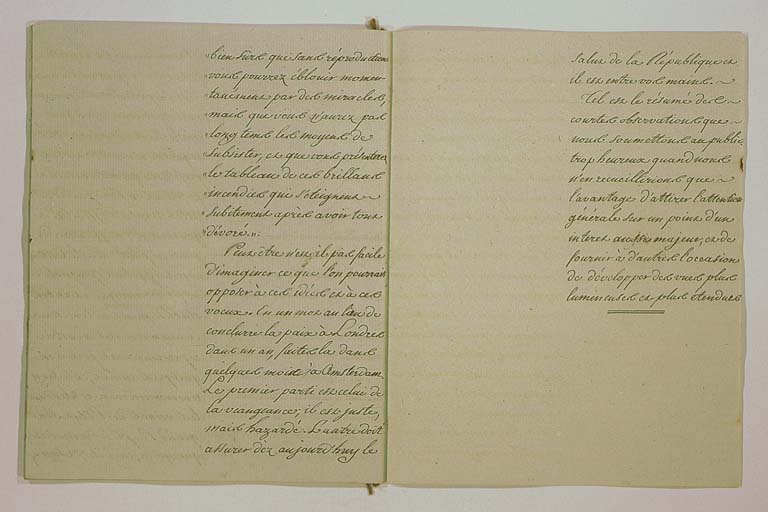 "bien surs que sans réproduction
"vous pourrez éblouir momen-
"tanément par des miracles,
"mais que vous n'aurez pas
"long tems les moyens de
"subsister, et que vous présenterez
"le tableau de ces brillans
"incendies qui s'éteignent ~
"subitement après avoir tout
"dévoré".
Peut être n'est-il pas facile
d'imaginer ce que l'on pourrait
opposer à ces idées et à ces
voeux. En un mot au lieu de
conclurre la paix à Londres
dans un an, faites la dans
quelques mois à Amsterdam.
Le premier parti est celui de
la veangeance; il est juste,
mais hazardé. L'autre doit
assurer dèz aujourd'huy le
salut de la République et
il est entre vos mains. ~
Tel est le résumé des ~
courtes observations que ~
nous soumettons au public,
trop heureux quand nous
n'en recueillerions que ~
l'avantage d'attirer l'attention
générale sur un point d'un
interet majeur, et de
fournir à d'autres l'occasion
de développer des vues plus
lumineuses et plus étendues